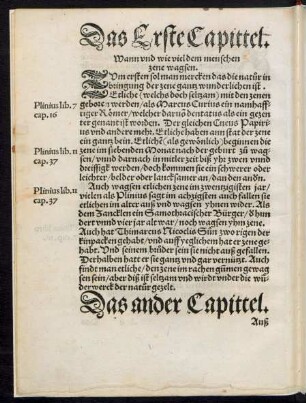 Das Erste Capittel.
Wann vnd wie viel dem menschen
zene wagsen.
Vm ersten sol man mercken das die natür in
bringung der zene gantz wunderlichen ist.
Etliche (welchs doch seltzam) mit den zenen
Plinius lib. 7
cap. 16
geboren werden/als Marcus Curius ein namhaff-
tiger Römer/welcher darub dentatus als ein gezen
ter genant ist worden. Der gleichen Cneus Papiri-
us vnd andere mehr. Etliche haben ann stat der zene
ein gantz bein. Etliche (als gewönlich) beginnen die
Plinius lib. 11
cap. 37
zene im siebenden Monet nach der geburt zů wag-
sen/vnnd darnach in mitler zeit biß yhr zwen vnnd
dreissigk werden/doch kommen sie ein schwerer oder
leichter/belder oder lancksamer an/dan den andern.
Plinius lib. 11
cap. 37
Auch wagsen etlichen zene im zwentzigisten jar/
vielen als Plinius sagt im achtzigisten auch fallen sie
etlichen im alter auß vnd wagsen yhnen wider. Als
dem Zancklen ein Samothracischer Bürger/8 hun
dert vnnd vier jar alt war/noch wagsen yhm zene.
Auch hat Thimarcus Nicoclis Sün zwo rigen der
kinpacken gehabt/vnd auff yeglichen hat er zene ge-
habt. Vnd seinem brůder sein sie nicht auß gefallen.
Derhalben hatt er sie gantz vnd gar vernützt. Auch
findt man etliche/den zene im rachen gůmen gewag
sen sein/aber diß ist seltzam vnd wirdt vnder die wů-
derwerck der natür gezelt.
Das ander Capittel.
Auß